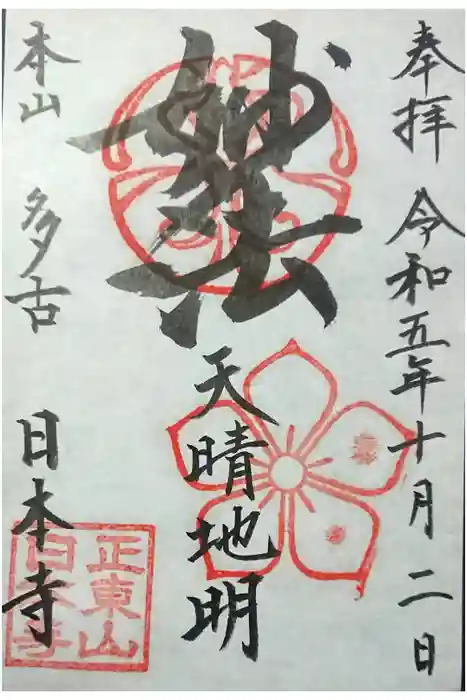 奉拝 令和五年十月二日
妙法
天晴地明
本山 多古 日本寺
正東山
日本寺